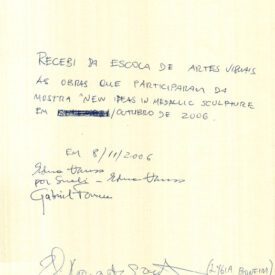 RECEBI DA ESCOLA DE ARTES VISUAIS
AS OBRAS QUE PARTICIPARAM DA
MOSTRA "NEW IDEAS IN MEDALLIC SCULPTURE
EM /OUTUBRO DE 2006.
EM 8/11/2006
por - Edna
Gabriel
(LYGIA BOMFIM)